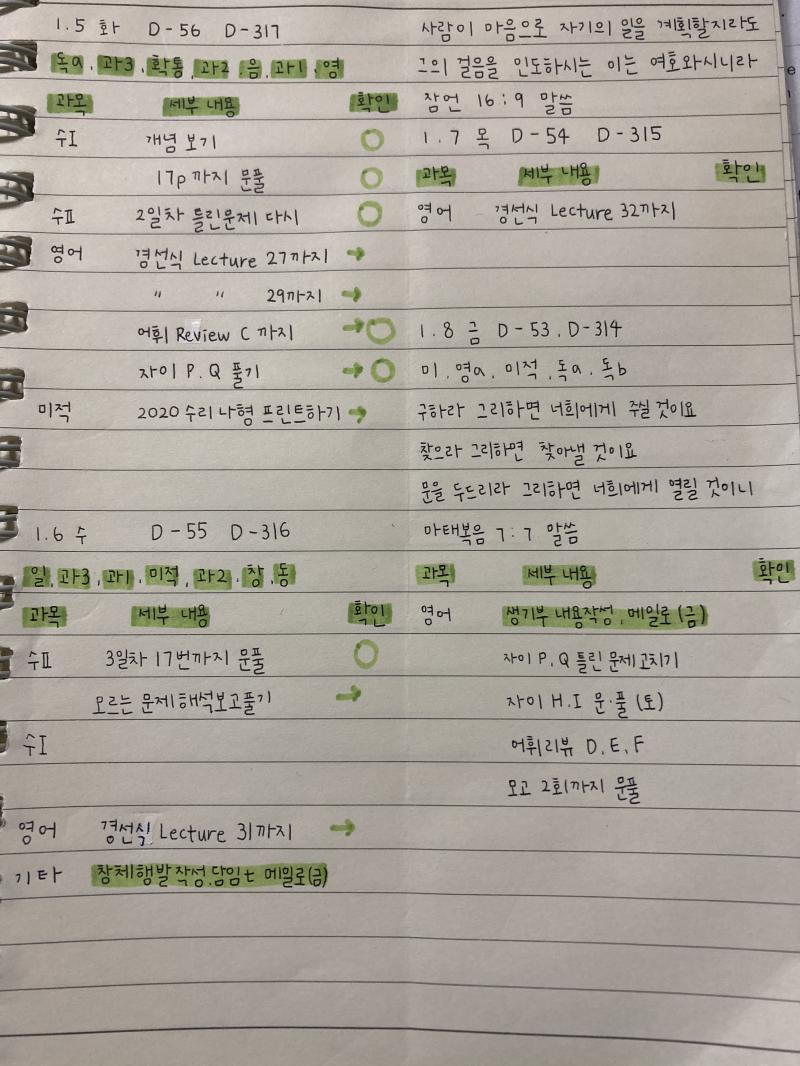 1.5 화 D-56 D-317
독a, 과3, 확통, 과2, 음, 과1, 영
과목 세부 내용 확인
수I 개념 보기
17p 까지 문풀
수II 2일차 틀린문제 다시
영어 경선식 Lecture 27까지 →
〃 〃 29까지 →
어휘 Review C 까지 →
자이 P.Q 풀기 →
미적 2020 수리 나형 프린트하기 →
1.6 수 D-55 D-316
일, 과3, 과1, 미적, 과2, 창, 동
과목 세부 내용 확인
수II 3일차 17번까지 문풀
모르는 문제 해석보고풀기 →
수I
영어 경선식 Lecture 31까지 →
기타 창체행발작성, 담임t 메일로(금)
사람이 마음으로 자기의 일을 계획할지라도
그의 걸음을 인도하시는 이는 여호와시니라
잠언 16:9 말씀
1.7 목 D-54 D-315
과목 세부 내용 확인
영어 경선식 Lecture 32까지
1.8 금 D-53, D-314
미, 영a, 미적, 독a, 독b
구하라 그리하면 너희에게 주실 것이요
찾으라 그리하면 찾아낼 것이요
문을 두드리라 그리하면 너희에게 열릴 것이니
마태복음 7:7 말씀
과목 세부 내용 확인
영어 생기부 내용작성, 메일로(금)
자이 P.Q 틀린 문제고치기
자이 H.I 문·풀 (토)
어휘리뷰 D, E, F
모고 2회까지 문풀